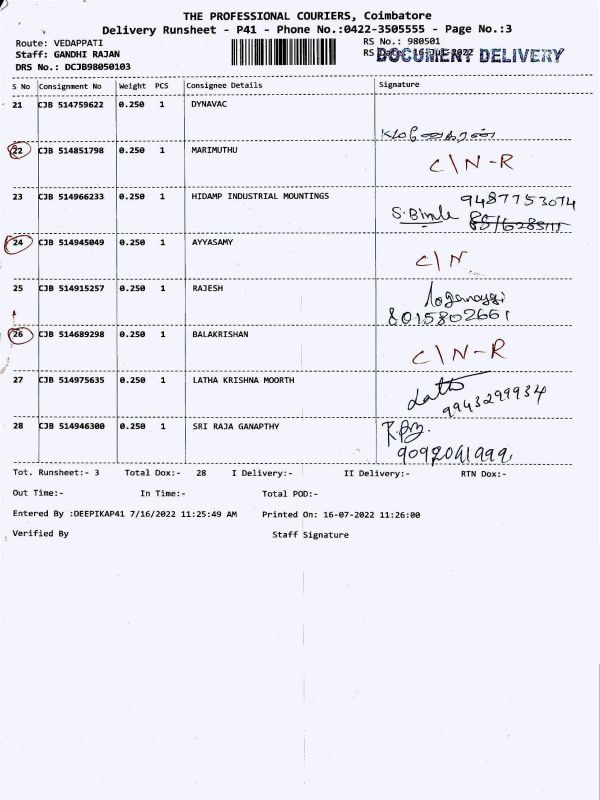 THE PROFESSIONAL COURIERS, Coimbatore
Delivery Runsheet - P41 - Phone No.:0422-3505555 - Page No.:3
Route: VEDAPPATI
RS No.: 980501
Staff: GANDHI RAJAN
RS Date: 16-Jul-2022
DOCUMENT DELIVERY
DRS No.: DCJB98050103
S No Consignment No Weight PCS Consignee Details Signature
21 CJB 514759622 0.250 1 DYNAVAC
22 CJB 514851798 0.250 1 MARIMUTHU C\N-R
23 CJB 514966233 0.250 1 HIDAMP INDUSTRIAL MOUNTINGS 9487753074
24 CJB 514945049 0.250 1 AYYASAMY C\N
25 CJB 514915257 0.250 1 RAJESH
8015802661
26 CJB 514689298 0.250 1 BALAKRISHAN C\N-R
27 CJB 514975635 0.250 1 LATHA KRISHNA MOORTH Latha
9943299934
28 CJB 514946300 0.250 1 SRI RAJA GANAPTHY
9092041999
Tot. Runsheet:- 3 Total Dox:- 28 I Delivery:- II Delivery:- RTN Dox:-
Out Time:- In Time:- Total POD:-
Entered By :DEEPIKAP41 7/16/2022 11:25:49 AM Printed On: 16-07-2022 11:26:00
Verified By Staff Signature